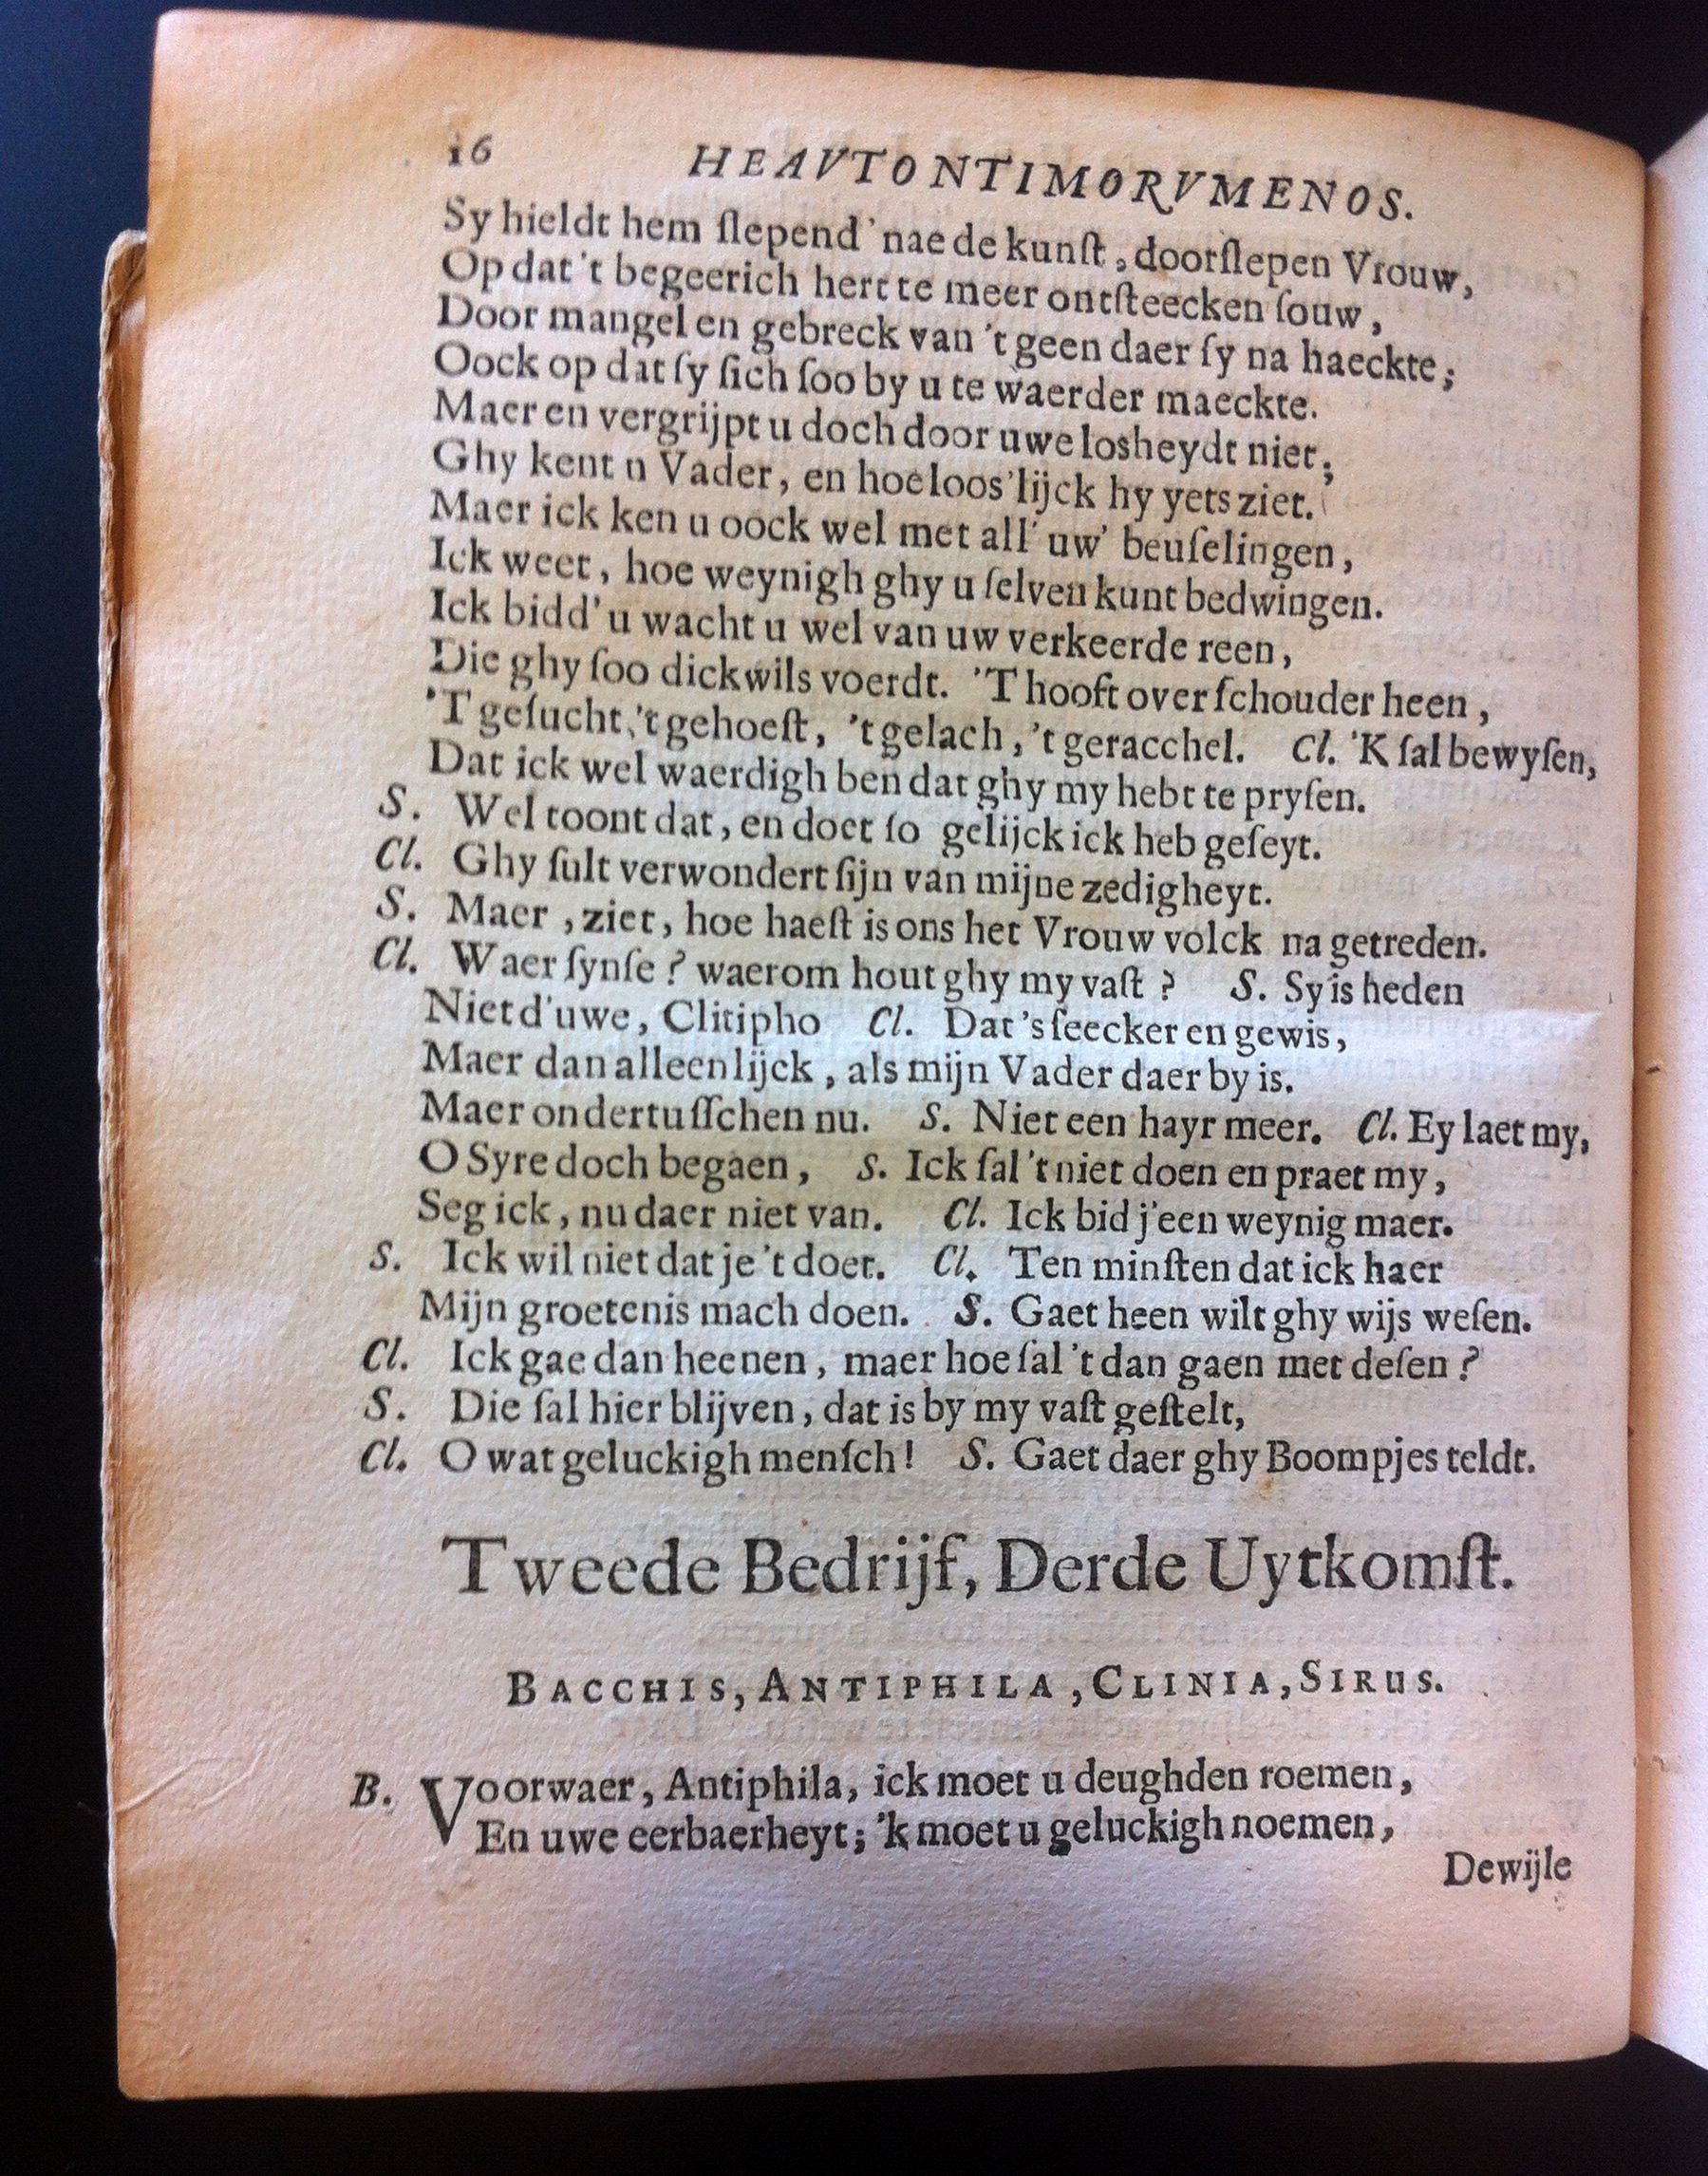 16 HEAVTONTIMORVMENOS.
Sy hieldt hem ſlepend' nae de kunſt, doorſlepen Vrouw,
Op dat 't begeerich hert te meer ontſteecken ſouw,
Door mangel en gebreck van 't geen daer ſy na haeckte;
Oock op dat ſy ſich ſoo by u te waerder maeckte.
Maer en vergrijpt u doch door uwe losheydt niet;
Ghy kent n Vader, en hoe loos'lijck hy yets ziet.
Maer ick ken u oock wel met all' uw' beuſelingen,
Ick weet, hoe weynigh ghy u ſelven kunt bedwingen.
Ick bidd' u wacht u wel van uw verkeerde reen,
Die ghy ſoo dickwils voerdt. 'T hooft over ſchouder heen,
'T geſucht, 't gehoeſt, 't gelach, 't geracchel. Cl. 'K ſal bewyſen,
Dat ick wel waerdigh ben dat ghy my hebt te pryſen.
S. Wel toont dat, en doet ſo gelijck ick heb geſeyt.
Cl. Ghy ſult verwondert ſijn van mijne zedigheyt.
S. Maer, ziet, hoe haeſt is ons het Vrouw volck na getreden.
Cl. Waer ſynſe? waerom hout ghy my vaſt? S. Sy is heden
Niet d'uwe, Clitipho Cl. Dat 's ſeecker en gewis,
Maer dan alleenlijck, als mijn Vader daer by is.
Maer ondertuſſchen nu. S. Niet een hayr meer. Cl. Ey laet my,
O Syre doch begaen, S. Ick ſal 't niet doen en praet my,
Seg ick, nu daer niet van. Cl. Ick bid j'een weynig maer.
S. Ick wil niet dat je 't doet. Cl. Ten minſten dat ick haer
Mijn groetenis mach doen. S. Gaet heen wilt ghy wijs weſen.
Cl. Ick gae dan heenen, maer hoe ſal 't dan gaen met deſen?
S. Die ſal hier blijven, dat is by my vaſt geſtelt,
Cl. O wat geluckigh menſch! S. Gaet daer ghy Boompjes teldt.
Tweede Bedrijf, Derde Uytkomſt.
BACCHIS, ANTIPHILA, CLINIA, SIRUS.
B. Voorwaer, Antiphila, ick moet u deughden roemen,
En uwe eerbaerheyt; 'k moet u geluckigh noemen,
Dewijle